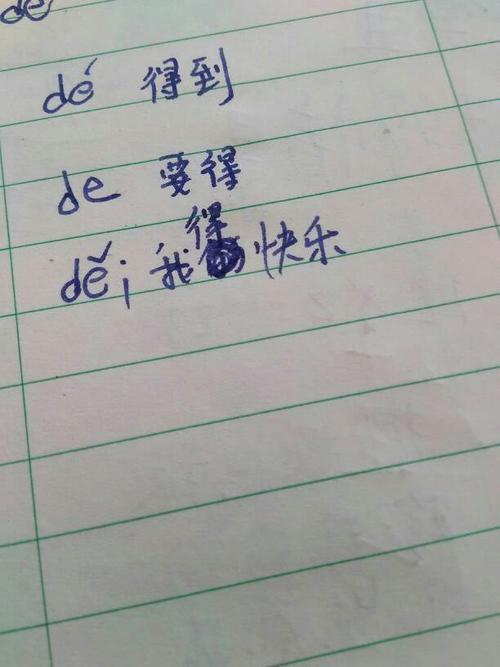 de
dé 得到
de 要得
dě; 我得快乐